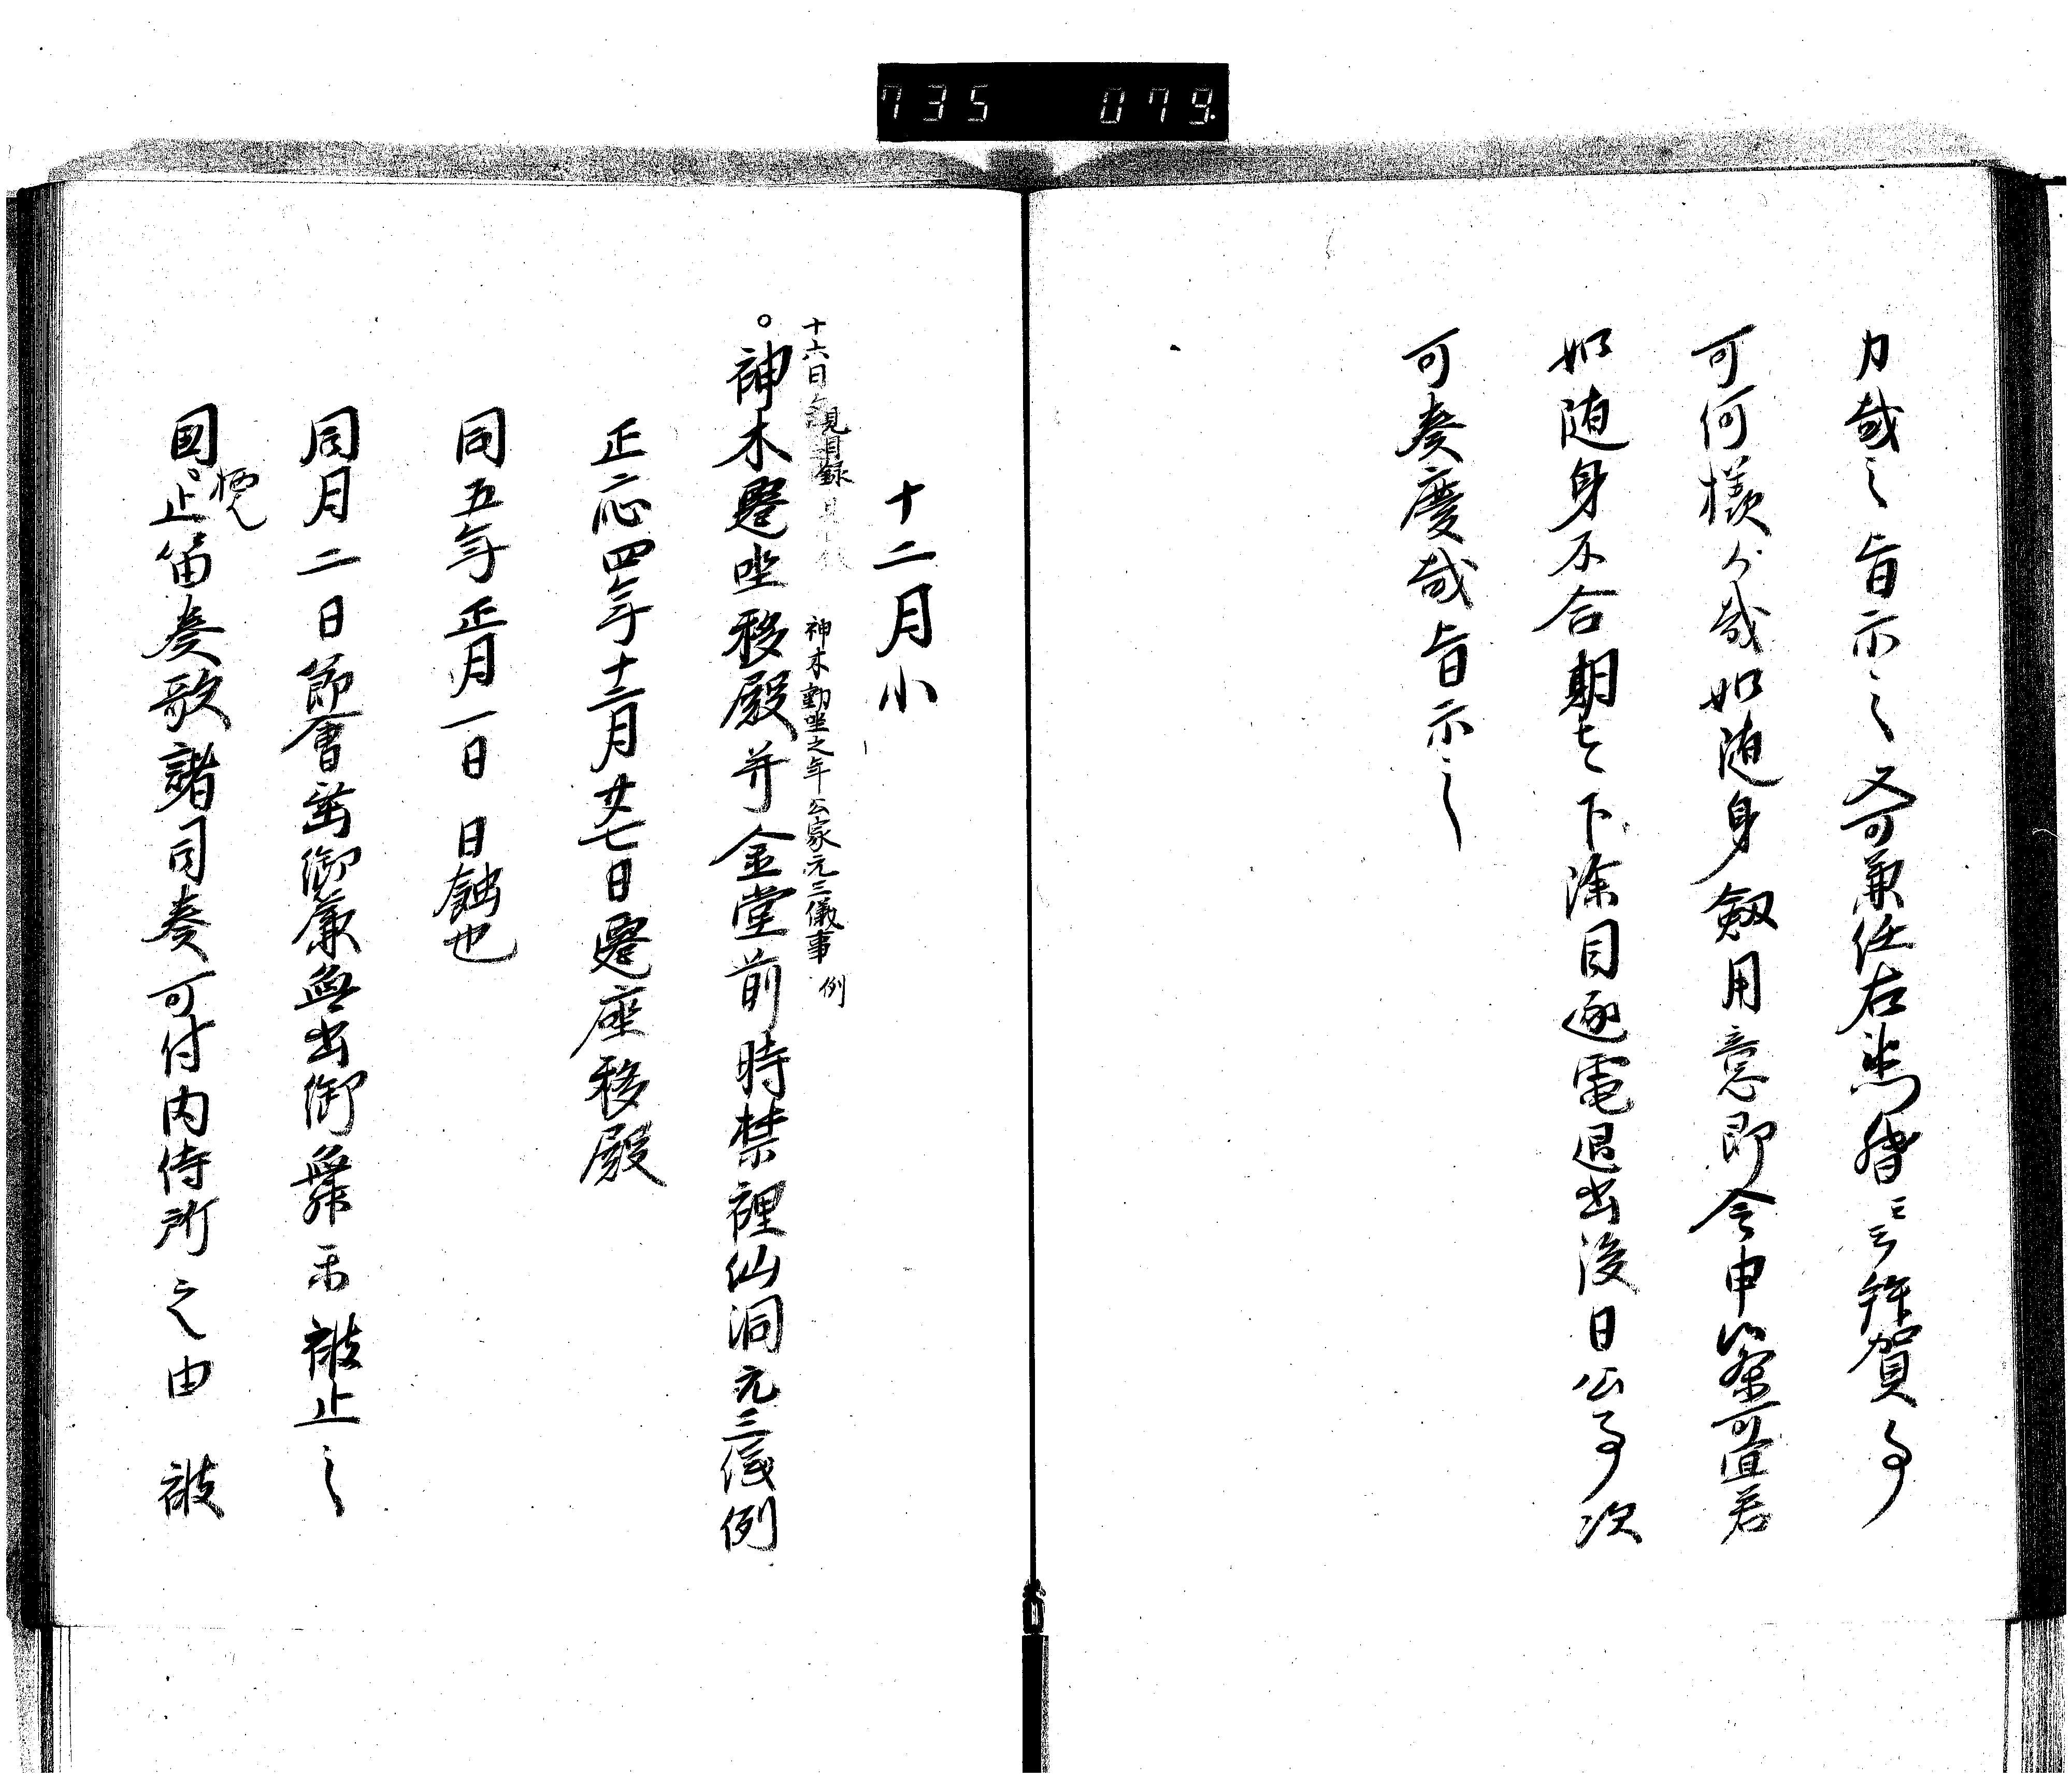 735 079.
力哉之旨示之又可兼任右馬督云々拜賀事
可何様候哉如随身劔用意即令申
如随身不合期者下除目逐電退出後日公事次
可奏慶哉旨示之
十二月小
十六日 見目録
神木動坐之年公家元三儀事例
。神木遷坐移殿并金堂前時禁裡仙洞元三儀例
正応四年十二月廿七日遷座移殿
同五年正月一日日蝕也
同月二日節會垂御簾無出御舞楽被止之
国栖止笛奏歌諸司奏可付内侍所之由被